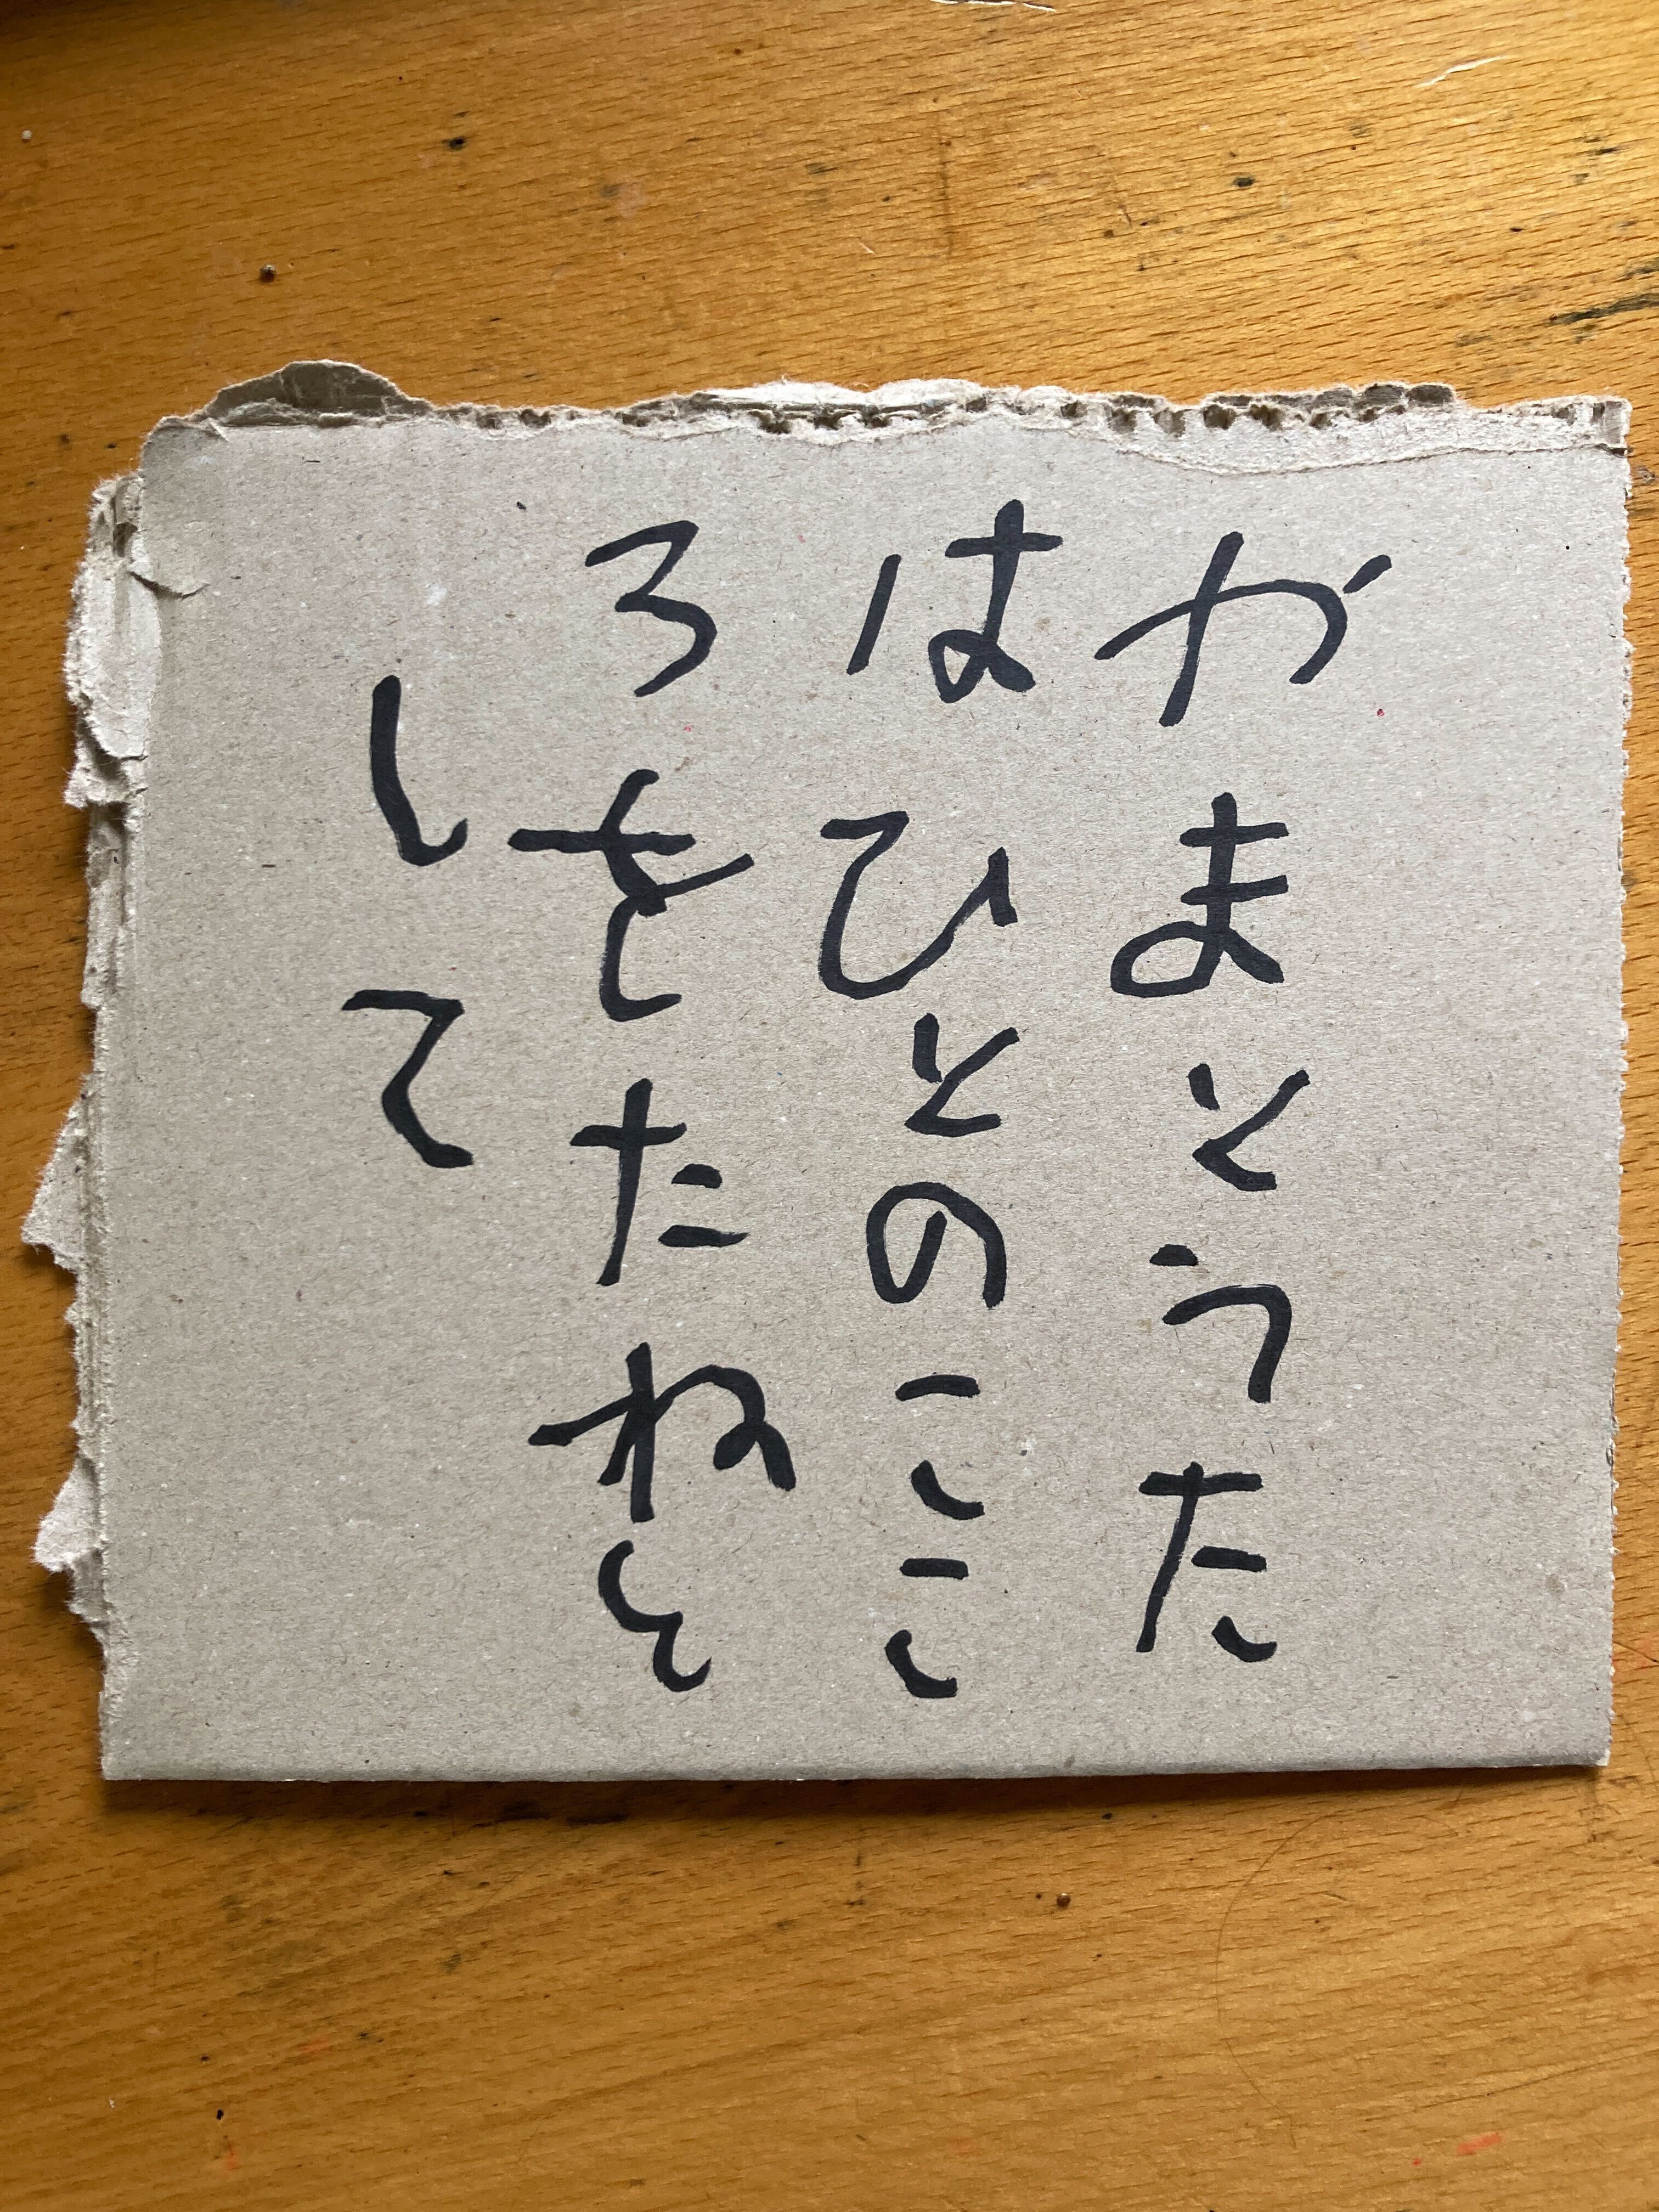 やまとうた
はひとのここ
ろをたねと
して